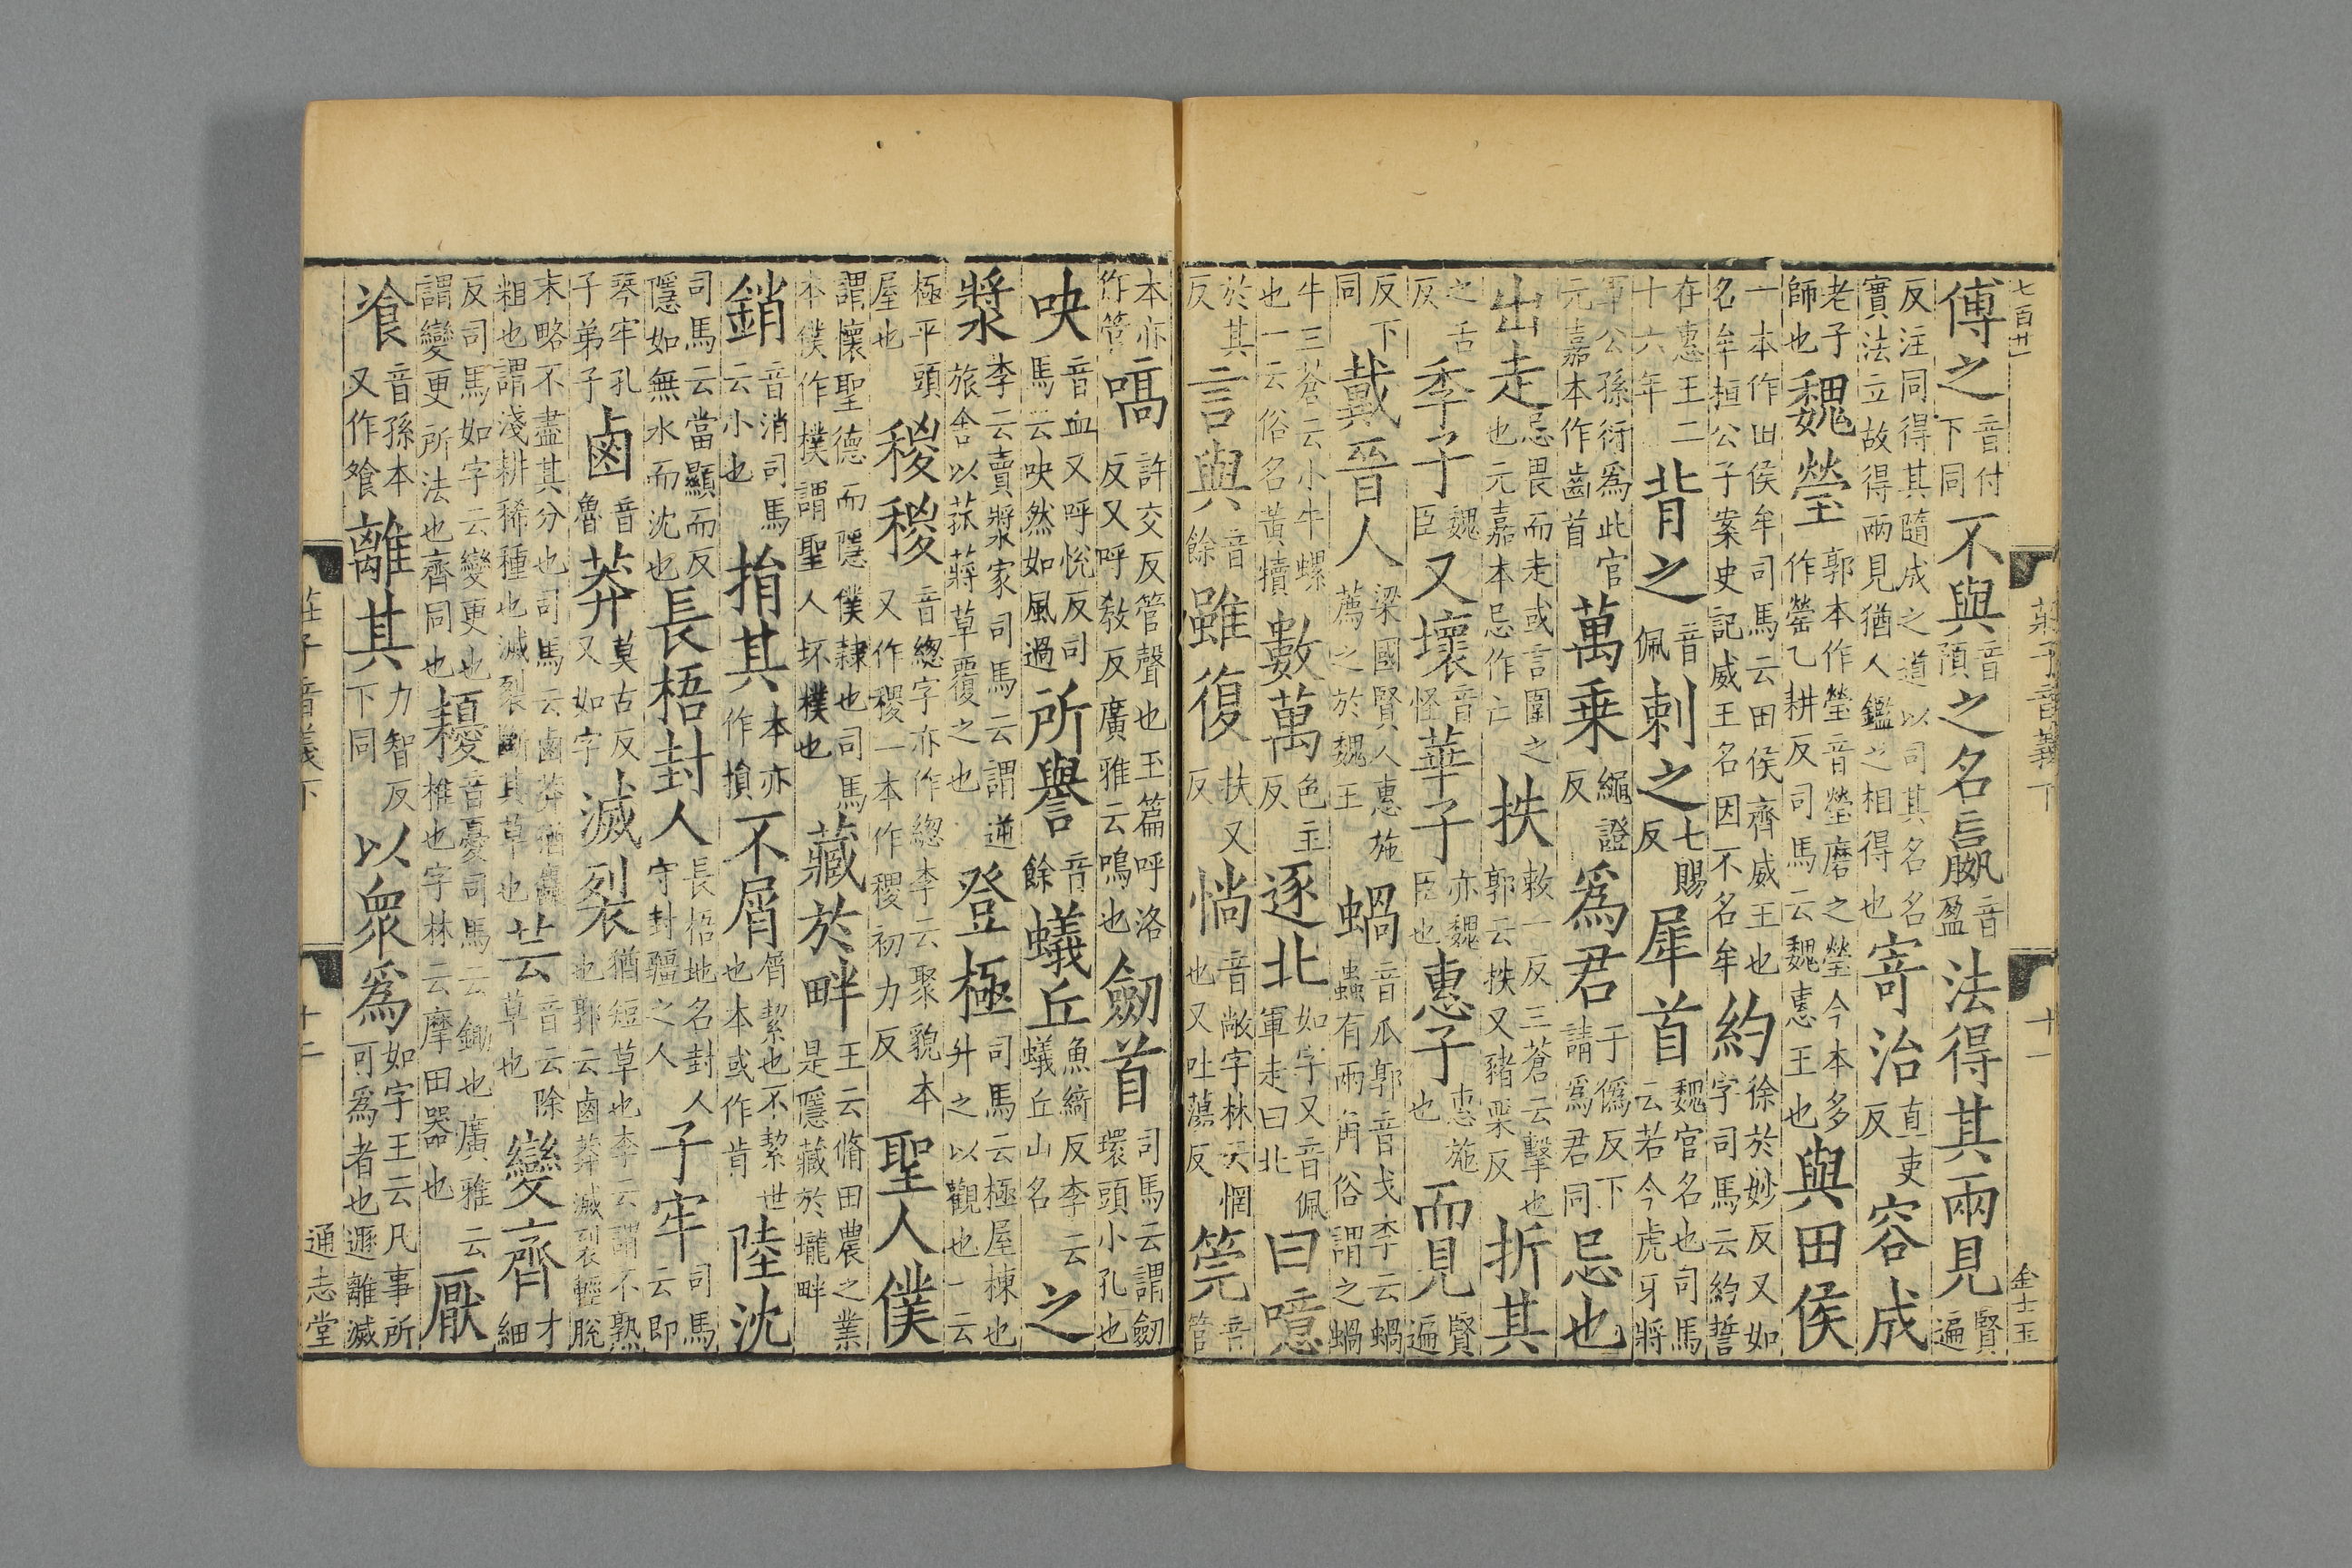 七百廿一 莊子音義下 十一 金士玉
傅之音付下同不與音預之名嬴音盈法得其兩見賢遍
反注同得其隨成之道以司其名名實法立故得兩見猶人鑑之相得也寄治直吏反容成
老子師也魏瑩郭本作瑩音瑩磨之瑩今本多作罃乙耕反司馬云魏惠王也與田侯
一本作田侯牟司馬云田侯齊威王也名牟桓公子案史記威王名因不名牟約徐於妙反又如字司馬云約誓
在惠王二十六年背之音佩刺之七賜反犀首魏官名也司馬云若今虎牙將
軍公孫衍爲此官元嘉本作齒首萬乗繩證反爲君于僞反下請爲君同忌也
出走忌畏而走或言圍之也元嘉本忌作亡抶敕一反三蒼云擊也郭云抶又豬栗反折其
之舌反季子魏臣又壞音怪華子亦魏臣也惠子惠施也而見賢遍
反下同戴晉人梁國賢人惠施薦之於魏王蝸音瓜郭音戈李云蝸蟲有兩角俗謂之蝸
牛三蒼云小牛螺也一云俗名黃犢數萬色主反逐北如字又音佩軍走曰北曰噫
於其反言與音餘雖復扶又反惝音敞字林云惘也又吐蕩反筦音管
本亦作管嗃許交反管聲也玉篇呼洛反又呼敎反廣雅云鳴也劒首司馬云謂劒環頭小孔也
吷音血又呼悅反司馬云吷然如風過所譽音餘蟻丘魚綺反李云蟻丘山名之
漿李云賣漿家司馬云謂逆旅舍以菰蔣草覆之也登極司馬云極屋棟也升之以觀也一云
極平頭屋也稯稯音總字亦作總李云聚貌本又作稷一本作稷初力反聖人僕
謂懷聖德而隱僕隸也司馬本僕作樸謂聖人坏樸也藏於畔王云脩田農之業是隱藏於壠畔
銷音消司馬云小也捐其本亦作損不屑屑絜也不絜世也本或作肯陸沈
司馬云當顯而反隱如無水而沈也長梧封人長梧地名封人守封疆之人子牢司馬云即
琴牢孔子弟子鹵音魯莽莫古反又如字滅裂猶短草也李云謂不熟也郭云鹵莽滅裂輕脫
末略不盡其分也司馬云鹵莽猶麤粗也謂淺耕稀種也滅裂斷其草也芸音云除草也變齊才細
反司馬如字云變更也謂變更所法也齊同也耰音憂司馬云鋤也廣雅云椎也字林云摩田器也厭
飡音孫本又作飧離其力智反下同以衆爲如字王云凡事所可爲者也遯離滅
莊子音義下 十二 通志堂